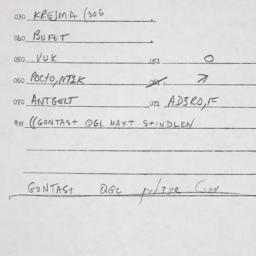 030 KREJMA /306
040 BUFET
050 VUK 051 0
060 POCTO,NTIK
070 ANTGELT 072 AD3RD,F
901 ((GONTAST QGL MAXT STINDLEN
GONTAST QGL